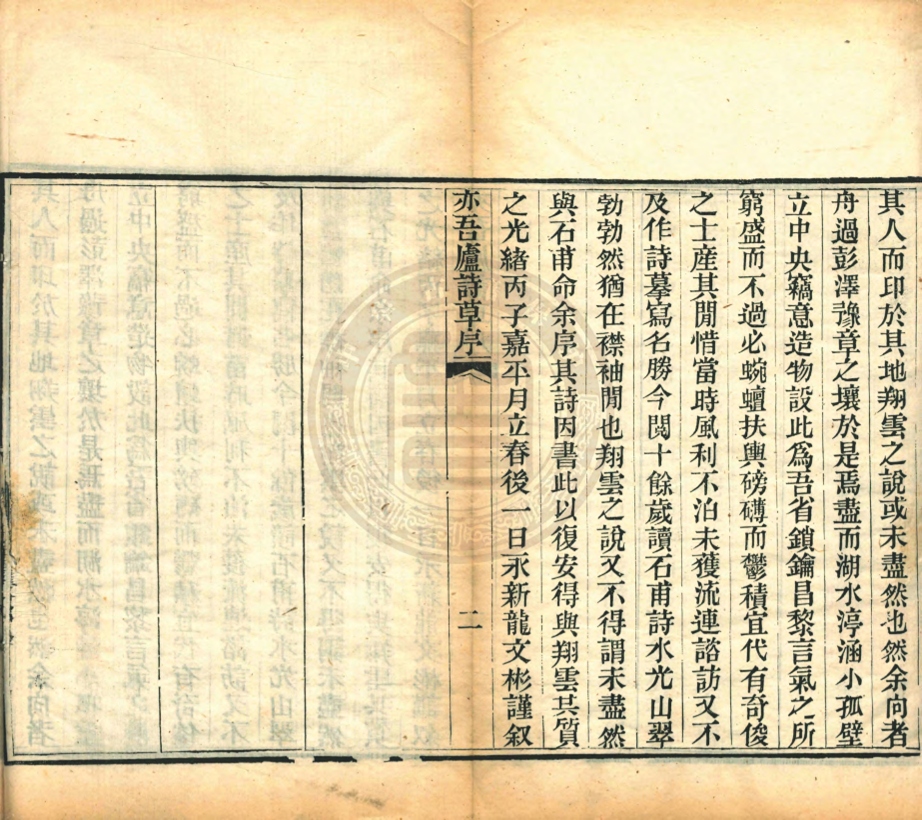 其人而印於其地翔雲之說或未盡然也然余向者
舟過彭澤豫章之壤於是焉盡而湖水渟涵小孤壁
立中央竊意造物設此爲吾省鎖鑰昌黎言氣之所
窮盛而不過必蜿蟺扶輿磅礴而鬱積宜代有奇俊
之士産其閒惜當時風利不泊未獲流連諮訪又不
及作詩摹寫名勝今閱十餘歲讀石甫詩水光山翠
勃勃然猶在襟袖閒也翔雲之說又不得謂未盡然
與石甫命余序其詩因書此以復安得與翔雲共質
之光緒丙子嘉平月立春後一日永新龍文彬謹叙
亦吾廬詩草序 二